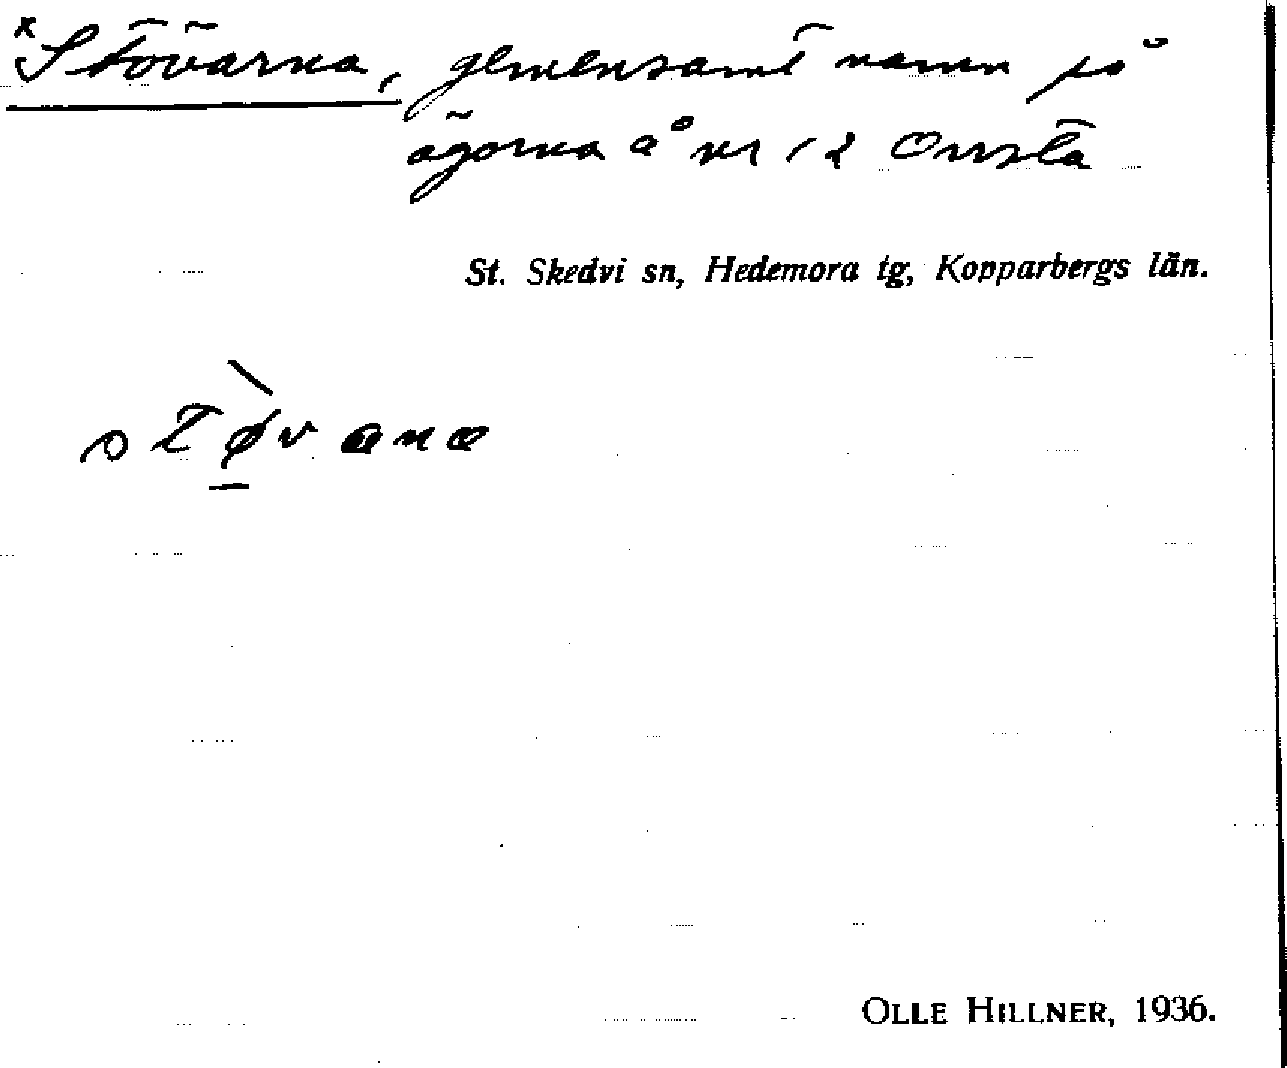 *Stövärna, gemensamt namn på
ägorna å nr 12 Onsta
St. Skedvi sn, Hedemora tg, Kopparbergs län.
stø̀vana
OLLE HILLNER, 1936.